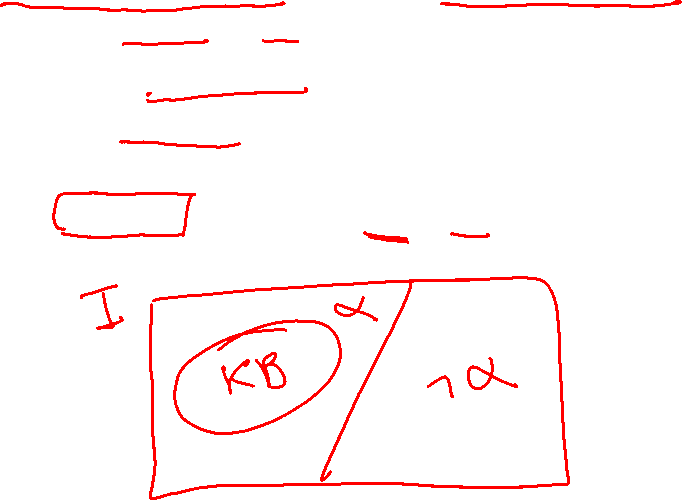 I
α
KB
¬α